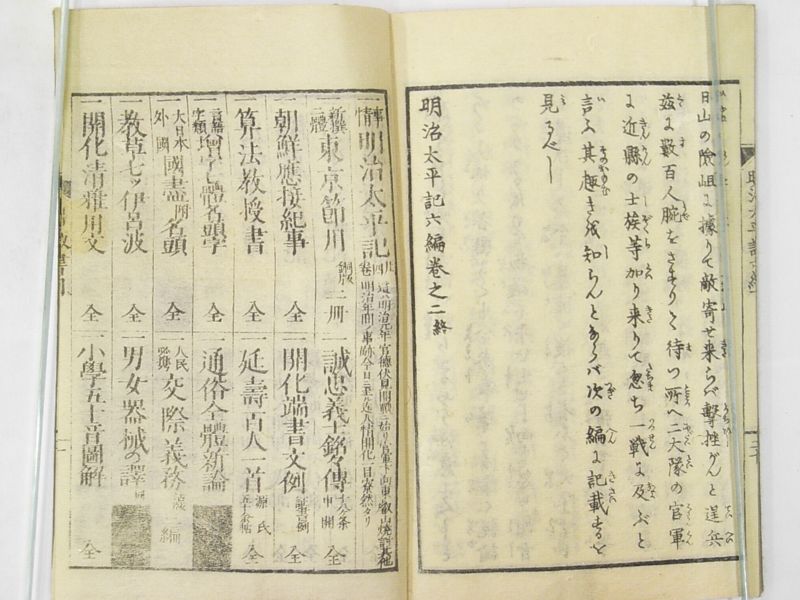 日山の險岨に據りて敵寄せ来らバ撃挫がんと逞兵
茲に数百人腕をさすりて待つ所へ二大隊の官軍
に近縣の士族等加り来りて忽ち一戦に及ぶと
言ふ其趣きを知らんとならバ次の編に記載するを
見るべし
明治太平記六編巻之二終
事情 明治太平記
新撰 二體 東京節用 銅版 二冊
誠忠義士銘々傳
朝鮮應接紀事 全
開化端書文例 全
算法教授書 全
延壽百人一首 源氏 五十余帖 全
言語 字類 名頭字 全
通俗全體新論
大日本 外國 國盡 名頭 全
人民 交際義務 二編
教草七ッ伊呂波 全
男女器械の譯
開化清雅用文 全
小學五十音圖解 全